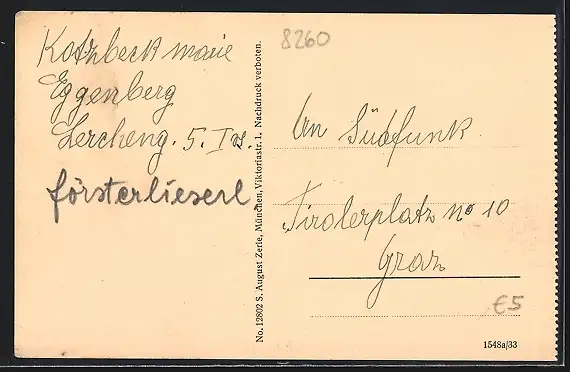 Kotzbeck marie
Eggenberg
Lercheng. 5. I St.
försterlieserl
No. 12802 S. August Zerle, München, Viktoriastr. 1. Nachdruck verboten.
8260
An Südfunk.
Tirolerplatz no 10
Graz
€5
1548a/33